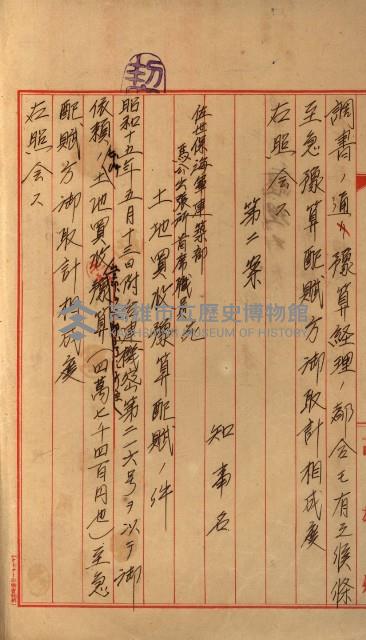 調書ノ通リ豫算経理ノ都合モ有之候條
至急豫算配賦方御取計相成度
右照会ス
第二案
知事名
佐世保海軍建築部
馬公出張所首席職員宛
土地買収豫算配賦ノ件
昭和十五年五月十三日附馬建機密第二一六号ヲ以テ御
依頼ノ土地買収豫算(四萬七千四百円也)至急
配賦方御取計相成度
右照会ス
高雄市立歷史博物館
KAOHSIUNG MUSEUM OF HISTORY